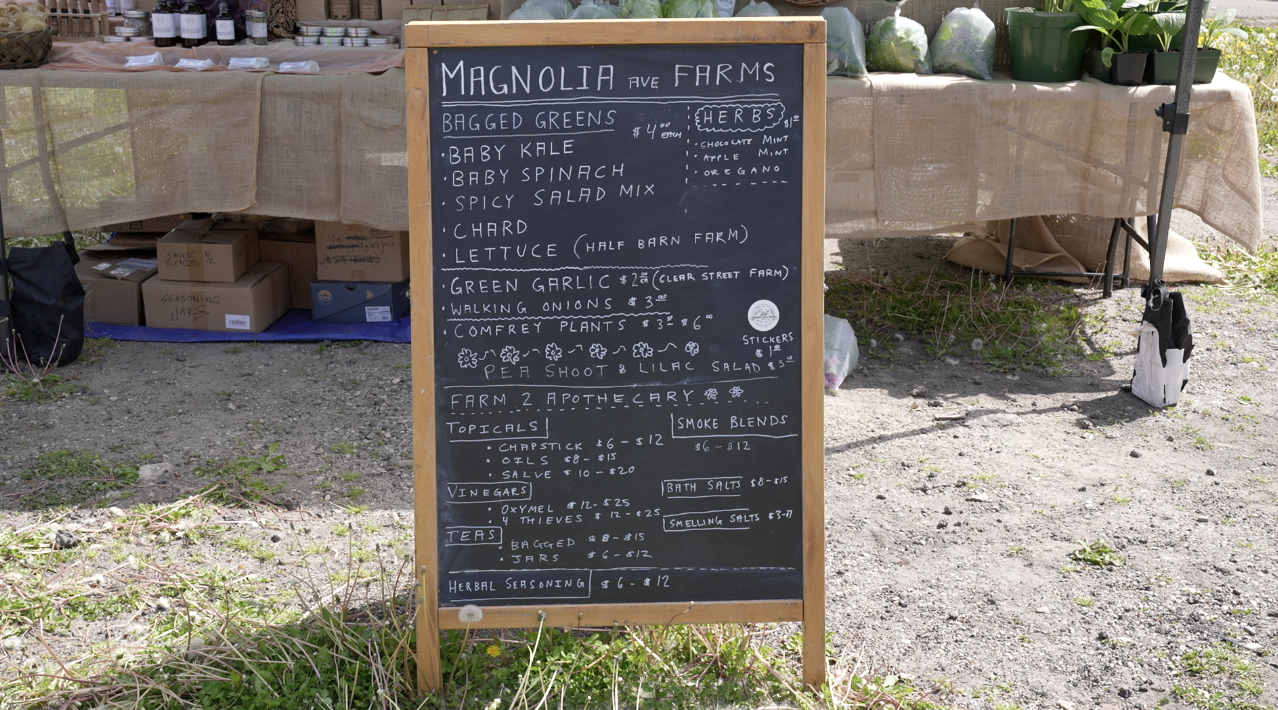 MAGNOLIA AVE FARMS
BAGGED GREENS $4.00 EACH
· BABY KALE
· BABY SPINACH
· SPICY SALAD MIX
· CHARD
· LETTUCE (HALF BARN FARM)
HERBS $1.00
· CHOCOLATE MINT
· APPLE MINT
· OREGANO
· GREEN GARLIC $2.00 (CLEAR STREET FARM)
· WALKING ONIONS $3.00
· COMFREY PLANTS $3.00 $6.00
STICKERS
$1.00
PEA SHOOT & LILAC SALAD $5.00
FARM 2 APOTHECARY
TOPICALS
· CHAPSTICK $6-$12
· OILS $8-$15
· SALVE $10-$20
SMOKE BLENDS
$6-$12
VINEGARS
· OXYMEL $12-$25
· 4 THIEVES $12-$25
BATH SALTS $8-$15
SMELLING SALTS $3-7
TEAS
· BAGGED $8-$15
· JARS $6-$12
HERBAL SEASONING $6-$12
SMOKE
BLENDS
SEASONING
JARS